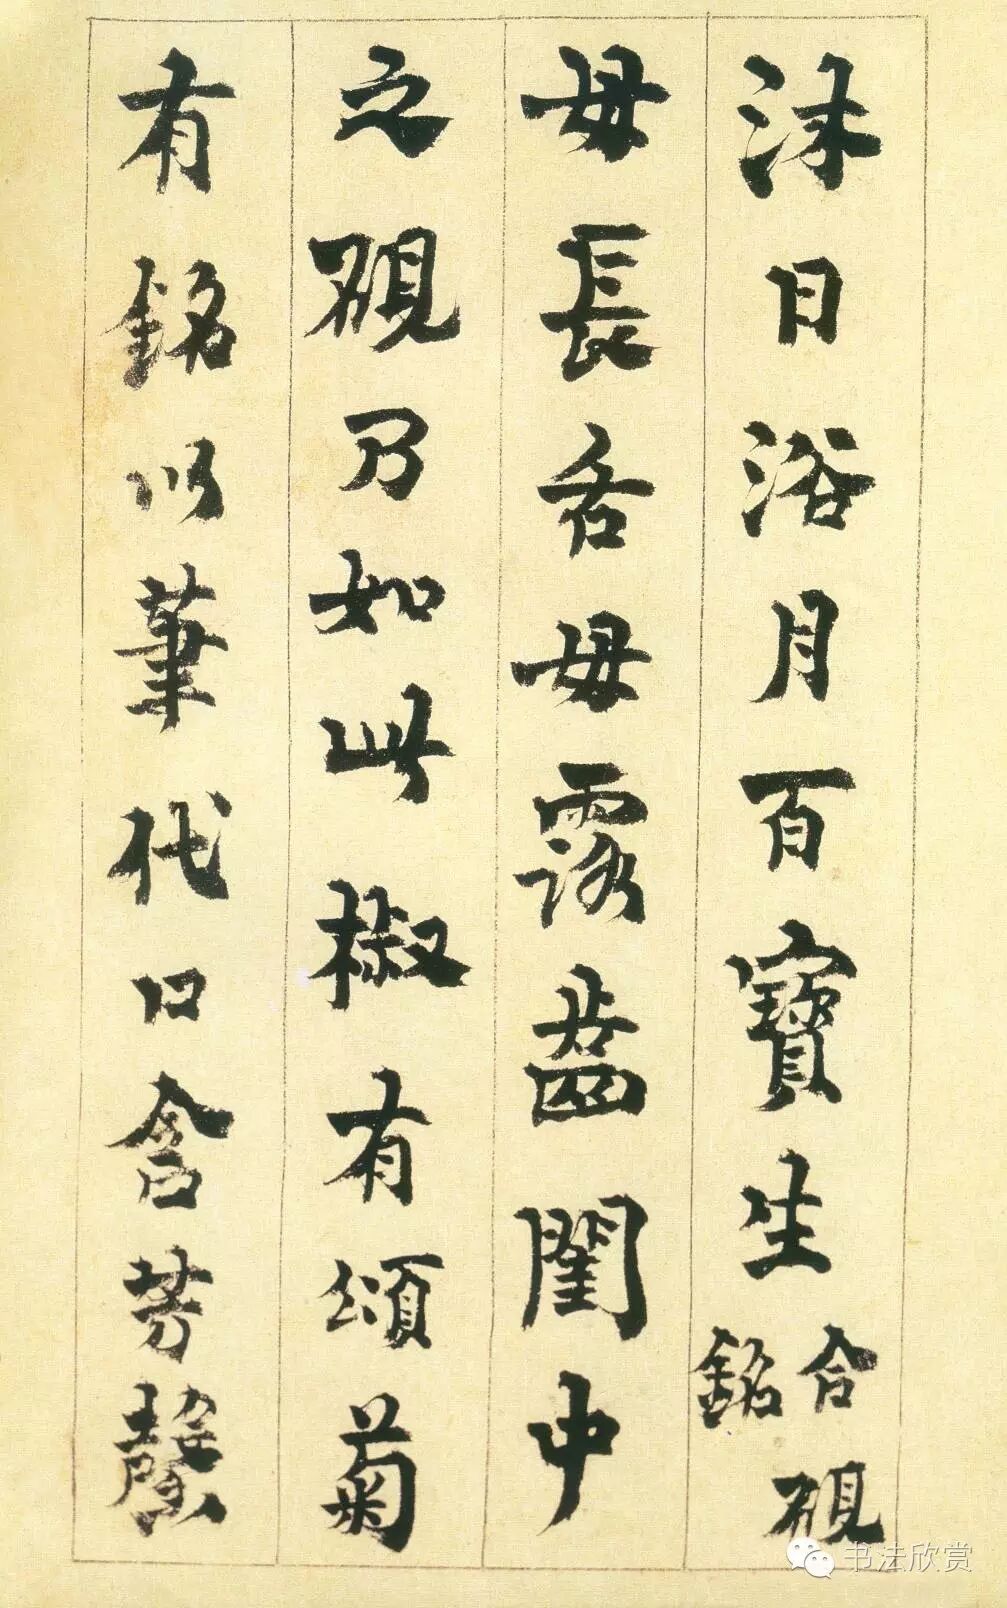 沐日浴月百寶生 合硯銘
毋長舌毋露齒閨中
之硯乃如此椒有頌菊
有銘以筆代口含芳馨
书法欣赏